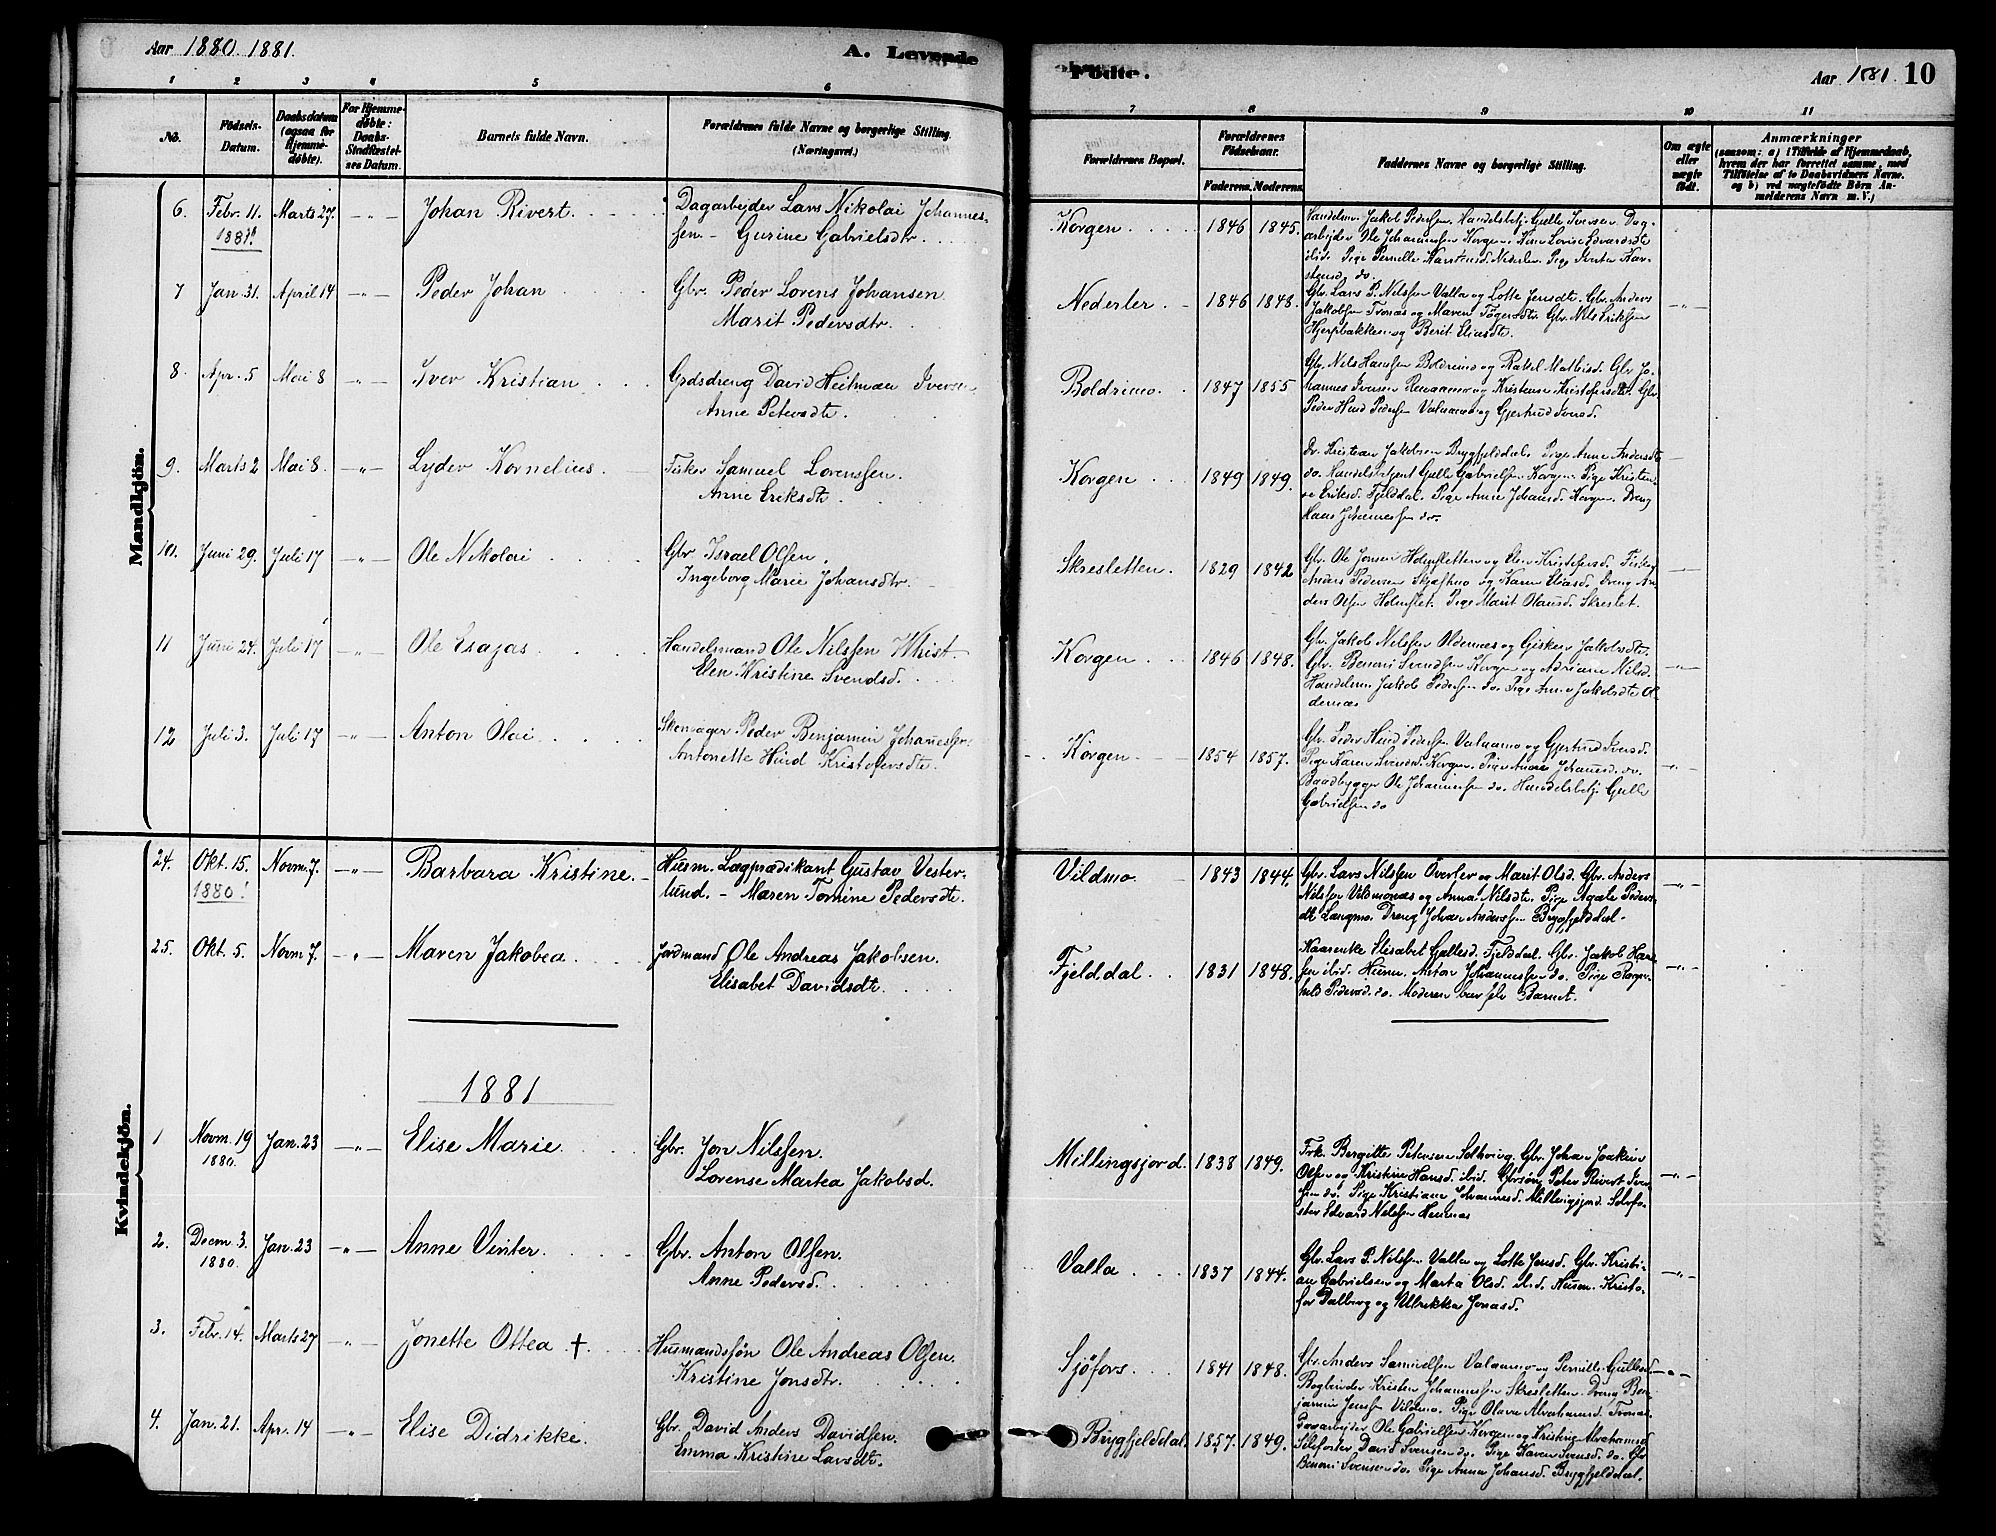 Aar 1880. 1881.
A. Levende
Födte.
Aar 1881. 10
1 2 3 4 5 6
7 8 9 10 11
No.
Födsels-
Datum.
Daabsdatum
(ogsaa for
Hjemme-
døbte).
For Hjemme-
døbte:
Daabs-
Stadfæstel-
ses Datum.
Barnets fulde Navn.
Forældrenes fulde Navne og borgerlige Stilling.
(Næringsvei.)
Forældrenes Bopæl.
Forældrenes
Födselsaar.
Faderens. Moderens.
Faddernes Navne og borgerlige Stilling.
Om ægte
eller
uægte
födt.
Anmærkninger
(saasom: a) i Tilfælde af Hjemmedaab,
hvem der har forrettet samme, med
Tilföielse af to Daabsvidners Navne.
og b) ved uægtefödte Börn An-
melderens Navn m. V.)
Mandkjön.
6. Febr. 11. Marts 27. -"- Johan Rivert. Dagarbejder Lars Nikolai Johannes-
1881!
sen - Gurine Gabrielsdtr.
Korgen 1846 1845.
Handelsm. Jakob Pedersen. Handelsbetj. Gulle Iversen. Dag-
arbejder Ole Johannessen Korgen.
ibid. Pige Pernelle Karstensd. Nederler. Pige Marta Kar-
stensd. do.
7 Jan. 31. April 14 -"- Peder Johan Gbr. Peder Lorens Johansen
Marit Pedersdtr.
Nederler 1846 1848.
Gbr. Lars P. Nilssen Valla og Lotte Jensdt. Gbr. Anders
Jakobsen Tronæs og Maren Tögersdtr. Gbr. Nils Eriksen
Hjerpbakken og Berit Eliasdt. -"-
8. Apr. 5 Mai 8 -"- Iver Kristian Grdsdreng David Heitman Iversen
Anne Petersdt.
Boldrimo. 1847 1855
Gbr. Nils Hansen Boldrimo og Rakel Mathisd. Gbr. Jo-
hannes Iversen og Kristense Kristofersdt. Gbr.
Peder Hind Pedersen Valaamo og Gjertrud Iversd.
9. Marts 2 Mai 8. -"- Lyder Kornelius. Fisker Samuel Lorenssen.
Anne Eriksdt.
Korgen 1849 1849.
Kristian Jakobsen Brygfjelddal. Pige Anne Andersdt
do. Handelsbetjent Gulle Gabrielsen Korgen. Pige Kristen-
se Eriksd. Fjelddal. Pige Anne Johansd. Korgen. Dreng
Hans Johannessen do.
10. Juni 29. Juli 17 -"- Ole Nikolai Gbr. Israel Olsen.
Ingeborg Marie Johansdtr.
Skresletten. 1829 1842
Gbr. Ole Jonsen Holmsletten og Elen Kristofersd. Fisker
Anders Pedersen og Karen Eliasd. Dreng An-
ders Olsen Holmslet. Pige Marit Olausd. Skreslet.
11 Juni 24. Juli 17 -"- Ole Esajas Handelsmand Ole Nilssen Whist
Elen Kristine Svendsd.
Korgen 1846 1848.
Gbr. Jakob Nilssen Oldernæs og Gisken Jakobsdt.
Gbr. Benoni Svendsen Korgen og Adriane Nilsd.
Handelsm. Jakob Pedersen do. Pige Anne Jakobsdt. Ol-
dernæs -"-
12 Juli 3. Juli 17 -"- Anton Olai Skomager Peder Benjamin Johannessen
Antonette Hind Kristofersdt.
Korgen 1854 1857.
Gbr. Peder Hind Pedersen Valaamo og Gjertrud Iversd.
Pige Karen Svensd. Korgen. Pige Anne Johansd. do.
Baadbygger Ole Johannessen do. Handelsbetj. Gulle
Gabrielsen do -"-
Kvindekjön.
24. Okt. 15. Novm. 7. -"- Barbara Kristine. Husm. Lægprædikant Gustav Vester-
1880!
lund. - Maren Tomine Pedersdt.
Vildmo 1843 1844.
Gbr. Lars Nilssen Överler og Marit Olsd. Gbr. Anders
Nilssen Vildmonæs og Anna Nilsdt. Pige Agate Peders-
dt. Langmo. Dreng Johan Anderssen Brygfjelddal. -"-
25. Okt. 5. Novm 7. " Maren Jakobea Jordmand Ole Andreas Jakobsen.
Elisabet Davidsdt.
Fjelddal 1831 1848.
Kaarenke Elisabet Gullesd. Fjelddal. Gbr. Jakob Han-
sen ibid. Husm. Anton Johannessen do. Pige Ragn-
hild Pedersd. do. Moderen bar selv Barnet. -"-
1881
1 Novm. 19 Jan. 23 -"- Elise Marie Gbr. Jon Nilssen.
1880.
Lorense Martea Jakobsd.
Millingsjord. 1838 1849.
Frk. Bergitte Petersen Solhveig. Gbr. Johan Joakim
Olsen og Kristine Hansd. ibid. Gbrsön Peter Rivert Iver-
sen do. Pige Kristiane Johannesd. Millingsjord. Selvfo-
ster Edvard Nilssen Hennæs -"-
2. Decm. 3. Jan. 23 -"- Anne Vinter Gbr. Anton Olsen.
1880.
Anne Pedersd.
Valla 1837 1844.
Gbr. Lars P. Nilssen Valla og Lotte Jensd. Gbr. Kristi-
an Gabrielsen og Marta Olsd. ibid. Husm. Kristo-
fer Dalberg og Ullrikke Jonasd. -"-
3. Febr. 14. Marts 27 -"- Jonette Ottea † Husmandssön Ole Andreas Olsen.
Kristine Jonsdtr.
Sjöfors 1841 1848.
Gbr. Anders Samuelsen Valaamo og Pernille Gullesd.
Bogbinder Kristen Johannessen Skresletten. Dreng Ben-
jamin Jenssen Vildmo. Pige Olava Abrahamsd. Tronæs. -"-
4. Jan. 21. Apr. 14 -"- Elise Didrikke. Gbr. David Anders Davidsen.
Emma Kristine Larsdt.
Brygfjelddal. 1857. 1849.
Dagarbejder Ole Gabrielsen Korgen og Kristine Abrahamsd.
Selvfoster David Svensen do. Pige Karen Svensd. do. Gbr.
Benoni Svensen do. Pige Anna Johansd. Brygfjelddal.